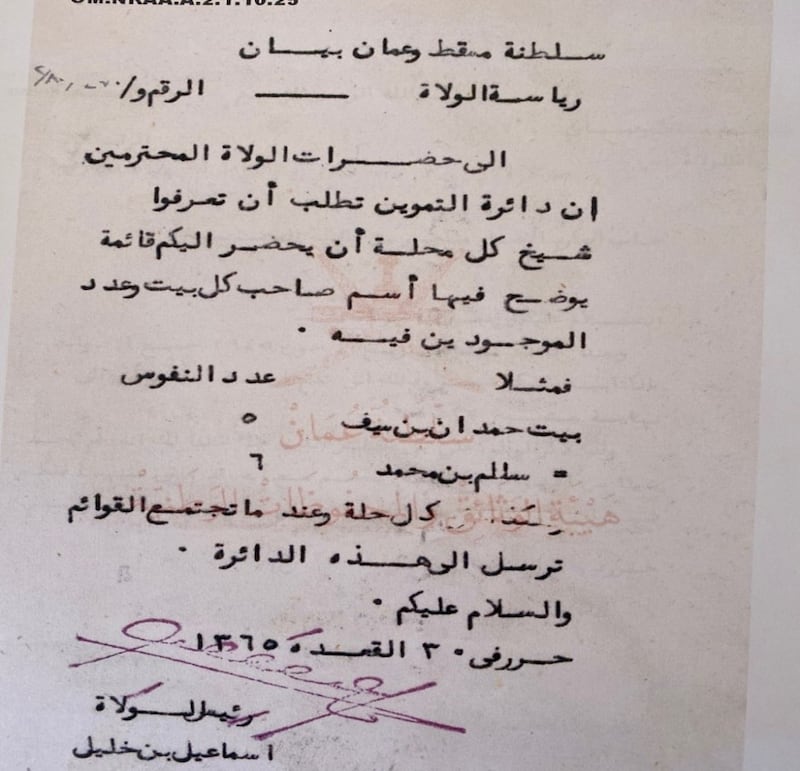 OM.NRAA.A.2.1.10.25
سلطنة مسقط وعمان بيان
رياسة الولاة الرقم و/
الى حضرات الولاة المحترمين
ان دائرة التموين تطلب أن تعرفوا
شيخ كل محلة أن يحضر اليكم قائمة
يوضح فيها أسم صاحب كل بيت وعدد
الموجودين فيه .
فمثلا عدد النفوس
بيت حمدان بن سيف ٥
= سالم بن محمد ٦
كل حلة وعند ما تجتمع القوائم
ترسل الى هذه الدائرة .
والسلام عليكم .
حرر فى ٣٠ القعده ١٣٦٥
رئيس الولاة
اسماعيل بن خليل
سلطنة عُمان
هيئة الوثائق والمحفوظات الوطنية